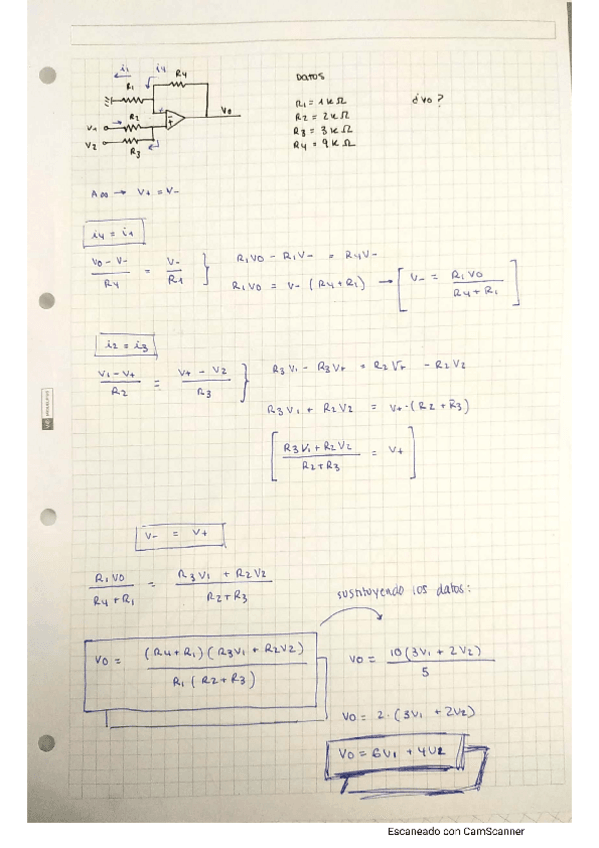 i1 i4
R1 R4
DATOS
R1 = 1K Ω
¿Vo?
R2 = 2K Ω
R3 = 3K Ω
R4 = 9K Ω
Vo
R2
V1
V2
R3
A∞ → V+ = V-
i4 = i1
Vo - V- / R4 = V- / R1 } R1Vo - R1V- = R4V-
R1Vo = V- (R4 + R1) → [ V- = R1Vo / R4 + R1 ]
i2 = i3
V1 - V+ / R2 = V+ - V2 / R3 } R3V1 - R3V+ = R2V+ - R2V2
R3V1 + R2V2 = V+ · (R2 + R3)
[ R3V1 + R2V2 / R2+R3 = V+ ]
V- = V+
R1Vo / R4+R1 = R3V1 + R2V2 / R2+R3
sustituyendo los datos:
Vo = (R4+R1)(R3V1 + R2V2) / R1 (R2+R3)
Vo = 10(3V1 + 2V2) / 5
Vo = 2 · (3V1 + 2V2)
Vo = 6V1 + 4V2
Escaneado con CamScanner